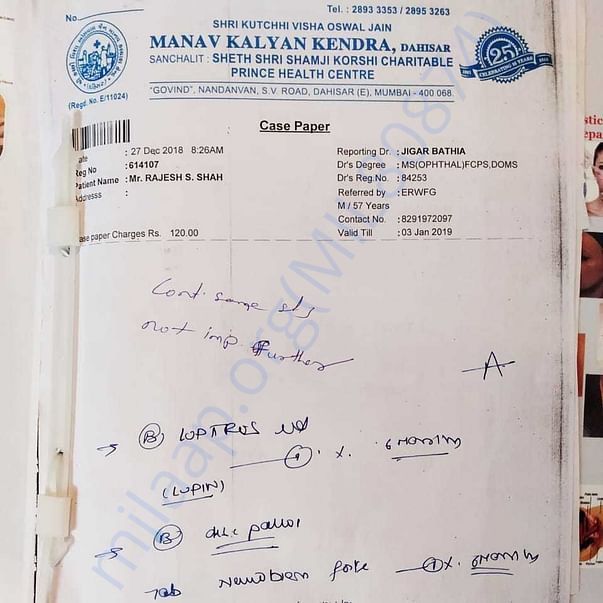 No.
Tel. : 2893 3353 / 2895 3263
SHRI KUTCHHI VISHA OSWAL JAIN
MANAV KALYAN KENDRA, DAHISAR
SANCHALIT : SHETH SHRI SHAMJI KORSHI CHARITABLE
PRINCE HEALTH CENTRE
(Regd. No. E/11024)
"GOVIND", NANDANVAN, S.V. ROAD, DAHISAR (E), MUMBAI - 400 068.
125
Case Paper
ate : 27 Dec 2018 8:26AM
Reg No : 614107
Patient Name : Mr. RAJESH S. SHAH
Addresss :
Reporting Dr. : JIGAR BATHIA
Dr's Degree : MS(OPHTHAL)FCPS,DOMS
Dr's Reg.No. : 84253
Referred by : ERWFG
M / 57 Years
Contact No. : 8291972097
Valid Till : 03 Jan 2019
ase paper Charges Rs. 120.00
Cont same
not imp further
A
(B)
1 x
(LUPIN)
(B) disc pallor
Tab forte 1 x
milaap.org